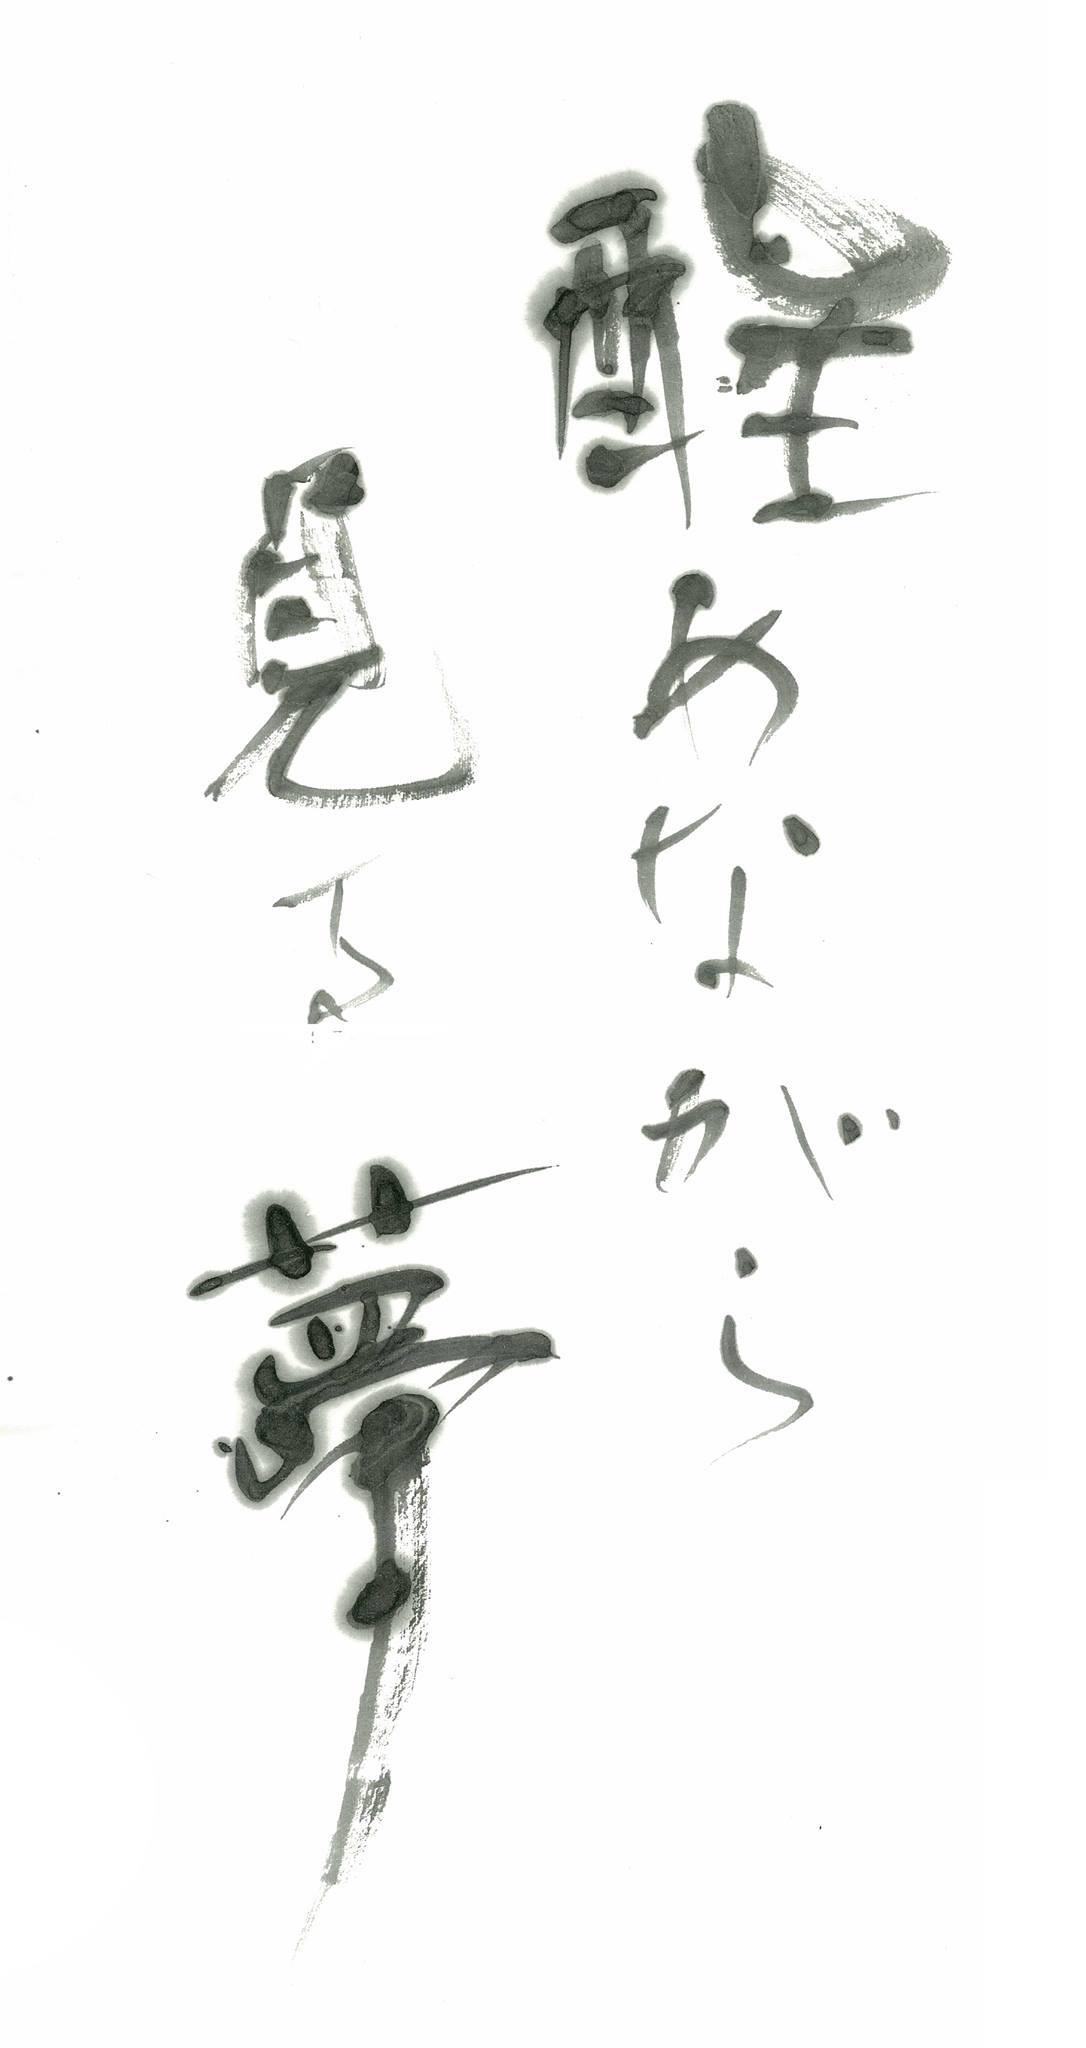 醒めながら
見る夢